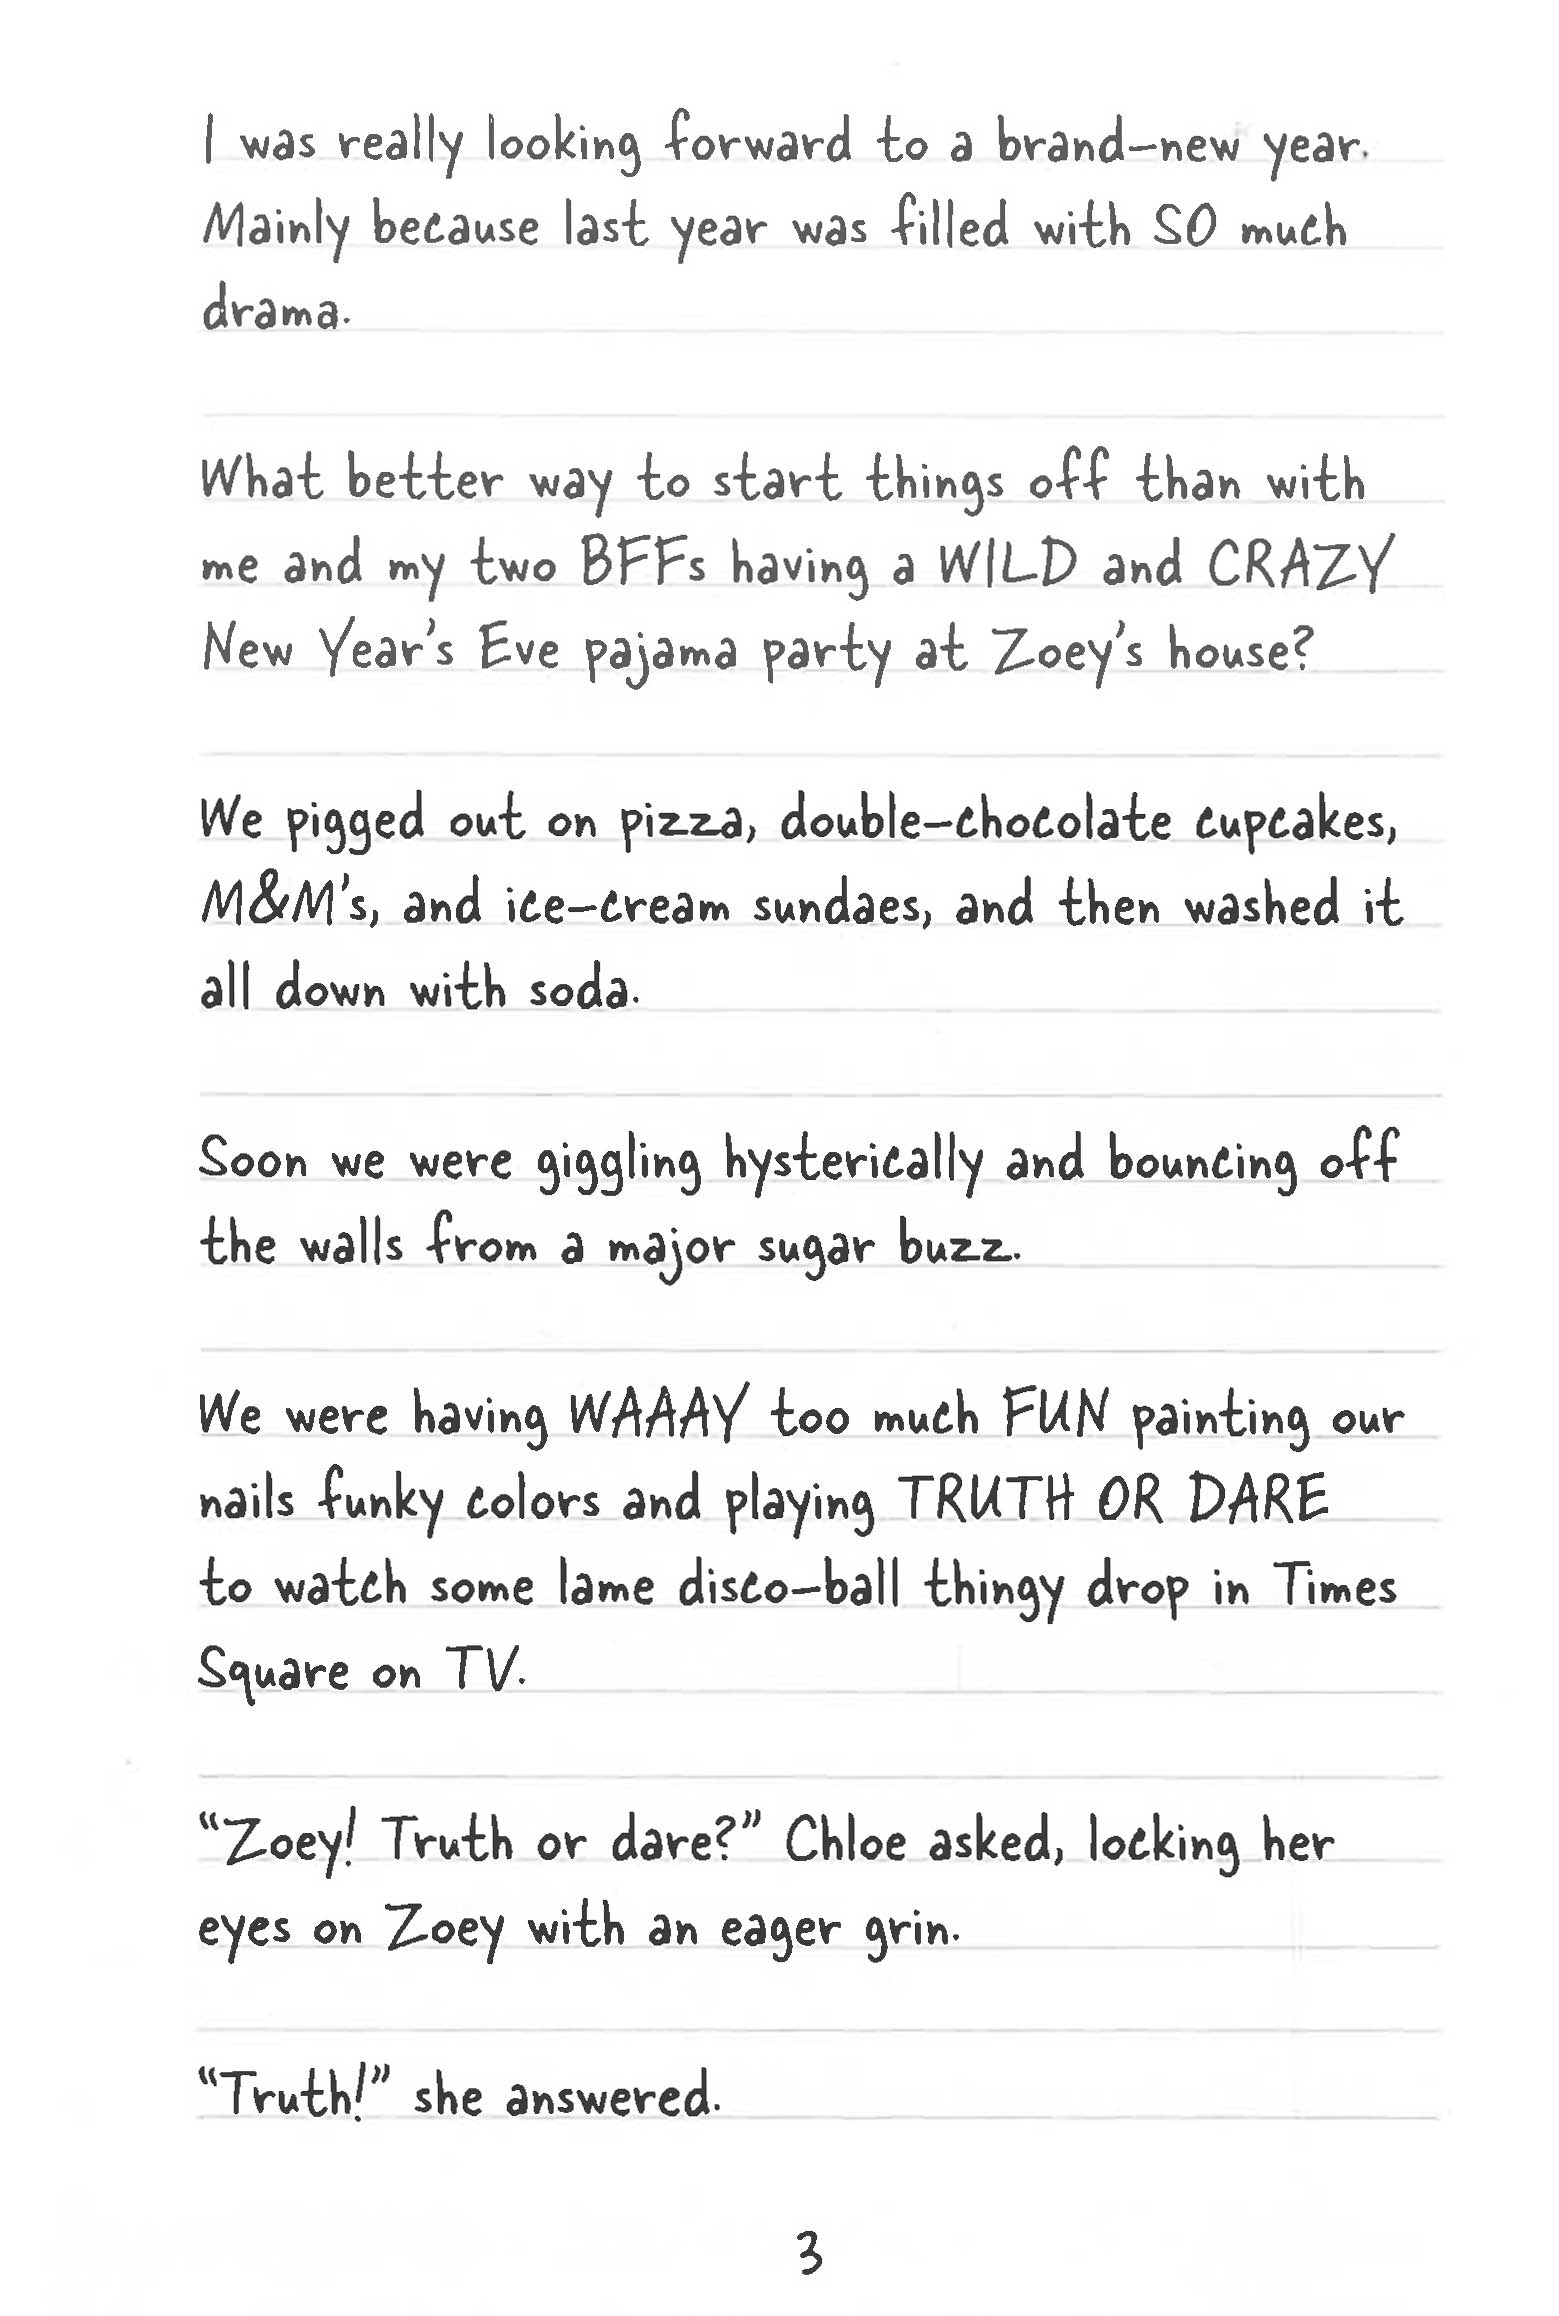 I was really looking forward to a brand-new year.
Mainly because last year was filled with SO much
drama.
What better way to start things off than with
me and my two BFFs having a WILD and CRAZY
New Year's Eve pajama party at Zoey's house?
We pigged out on pizza, double-chocolate cupcakes,
M&M's, and ice-cream sundaes, and then washed it
all down with soda.
Soon we were giggling hysterically and bouncing off
the walls from a major sugar buzz.
We were having WAAAY too much FUN painting our
nails funky colors and playing TRUTH OR DARE
to watch some lame disco-ball thingy drop in Times
Square on TV.
"Zoey! Truth or dare?" Chloe asked, locking her
eyes on Zoey with an eager grin.
"Truth!" she answered.
3